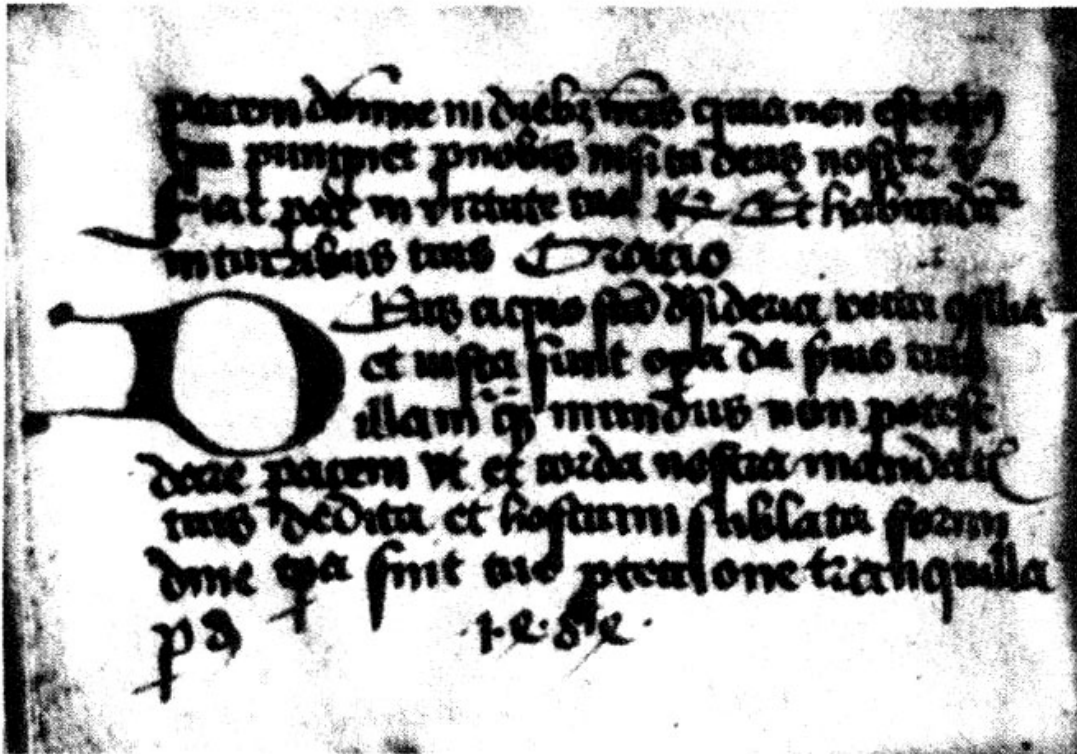 pacem domine in diebz nris quia non est alius
qui pungnet pnobis nisi tu deus noster v
Fiat pax in virtute tua R Et habundacia
in turribus tuis Oracio
Deus a quo scā desideria recta 9silia
et iusta sunt opa da suis tuis
illam quā mundus non potest
dare pacem vt et corda nostra mandatis
tuis dedita et hostium sublata formi
dine tpa sint tua ptectione tranquilla
p d